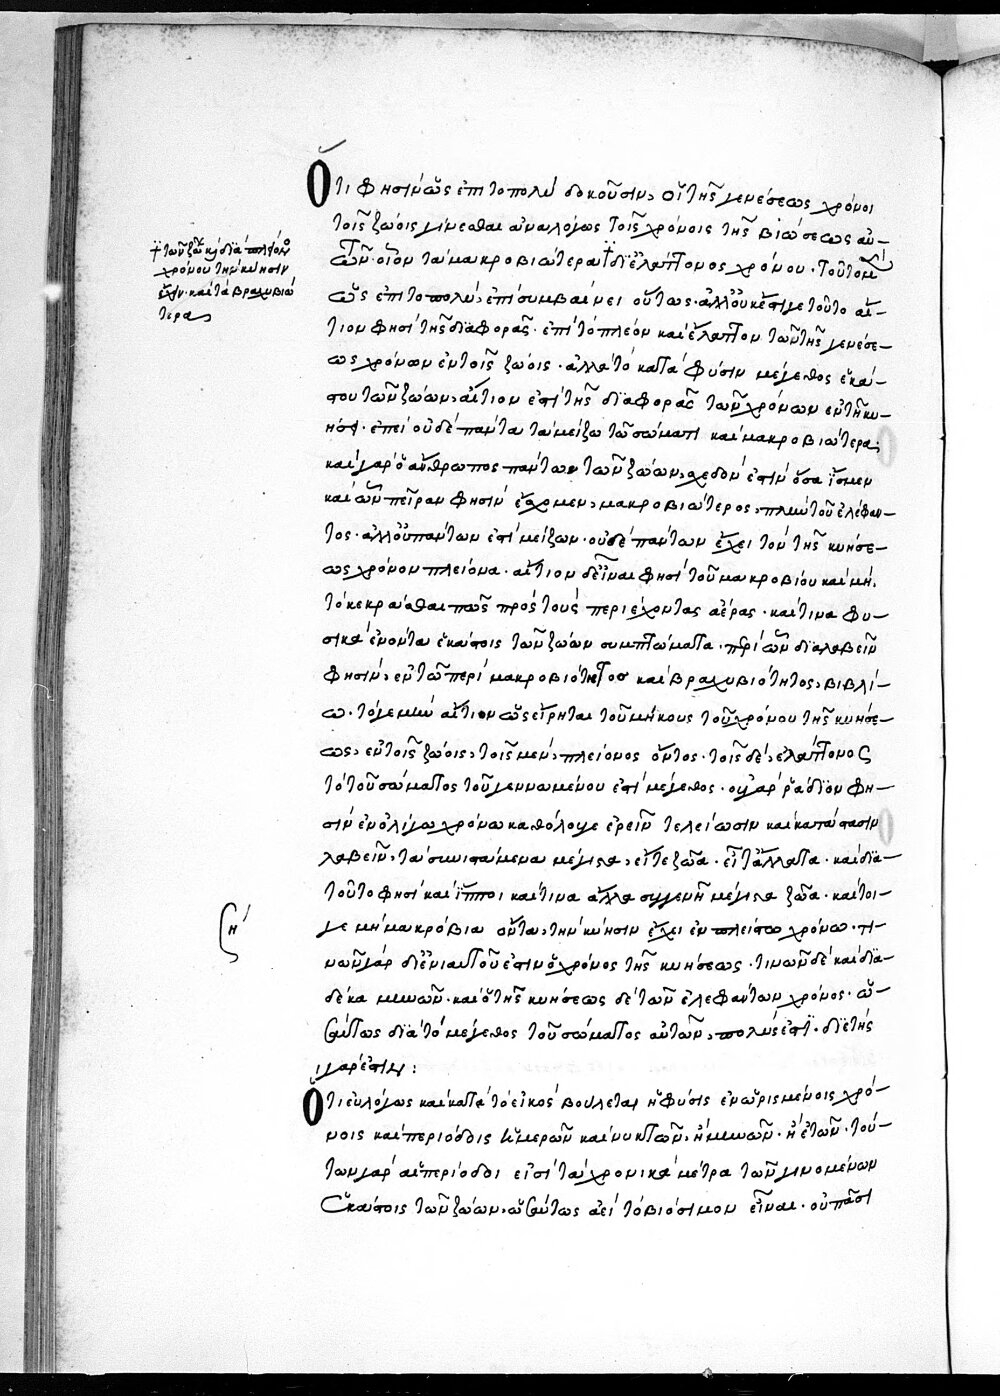 Ὅτι φησὶν ὡς ἐπιτοπολὺ δοκοῦσιν, οἱ τῆς γενέσεως χρόνοι
τοῖς ζώοις γίνεσθαι ἀναλόγως τοῖς χρόνοις τῆς βιώσεως αὐ-
τῶν· οἷον τὰ μακροβιώτερα † δι' ἐλάττονος χρόνου. τοῦτο μὲν
† τῶν ζώων διὰ πλείονος
χρόνου τὴν κύησιν
ἔχειν· καὶ τὰ βραχυβιώ
τερα
ὡς ἐπιτοπολὺ, ἐπισυμβαίνει οὕτως. ἀλλ' οὐκ ἔστι γε τοῦτο αἴ-
τιον φησὶ τῆς διαφορᾶς. ἐπὶ τὸ πλεόν καὶ ἔλαττον τῶν τῆς γενέσε-
ως χρόνων ἐν τοῖς ζώοις. ἀλλὰ τὸ κατὰ φύσιν μέγεθος ἑκά-
στου τῶν ζώων, αἴτιον ἐστὶ τῆς διαφορᾶς τῶν χρόνων ἐν τῇ κυ-
ήσει. ἐπεὶ οὐδὲ πάντα τὰ μείζω τῷ σώματι καὶ μακροβιώτερα,
καὶ γὰρ ὁ ἄνθρωπος πάντων τῶν ζώων, σχεδὸν ἐστὶν ὅσα ἴσμεν
καὶ ὧν πεῖραν φησὶν ἔχομεν, μακροβιώτερος, πλὴν τοῦ ἐλέφαν-
τος. ἀλλ' οὐ πάντων ἐστὶ μείζων. οὐδὲ πάντων ἔχει τὸν τῆς κυήσε-
ως χρόνον πλείονα. αἴτιον δ' εἶναι φησὶ τοῦ μακροβίου καὶ μή,
τὸ κεκρᾶσθαι πως πρὸς τοὺς περιέχοντας ἀέρας. καὶ τινα φυ-
σικὰ ἐνόντα ἑκάστοις τῶν ζώων συμπτώματα. περὶ ὧν διαλαβεῖν
φησὶν, ἐν τῷ περὶ μακροβιότητος καὶ βραχυβιότητος, βιβλί-
ω. τό γε μὴν αἴτιον ὡς εἴρηται τοῦ μήκους τοῦ χρόνου τῆς κυήσε-
ως, ἐν τοῖς ζώοις, τοῖς μὲν, πλείονος ὄντος. τοῖς δὲ, ἐλάττονος
τὸ τοῦ σώματος τοῦ γεννωμένου ἐστὶ μέγεθος. οὐ γὰρ ῥάδιον φη-
σὶν ἐν ὀλίγω χρόνω καθόλου γε ἐρεῖν τελείωσιν καὶ κατάστασιν
λαβεῖν, τὰ συνιστάμενα μεγάλα, εἴτε ζῶα. εἴτ' ἄλλάττα. καὶ διὰ-
τοῦτο φησὶ καὶ ἵπποι καὶ τινα ἄλλα συγγενῆ μεγάλα ζῶα. καὶ τοί-
γε μὴ μακρόβια ὄντα, τὴν κύησιν ἔχει ἐν πλείστω χρόνω. τι-
νῶν γὰρ δι' ἐνιαυτοῦ ἐστὶν ὁ χρόνος τῆς κυήσεως. τινῶν δὲ καὶ διὰ-
δέκα μηνῶν. καὶ ὁ τῆς κυήσεως δὲ τῶν ἐλεφάντων χρόνος. ὡ-
σαύτως διὰ τὸ μέγεθος τοῦ σώματος αὐτῶν, πολύς ἐστι. διετὴς
γὰρ ἐστιν:
ζή
Ὅτι εὐλόγως καὶ κατὰ τὸ εἰκὸς βούλεται ἡ φύσις ἐν ὡρισμένοις χρό-
νοις καὶ περιόδοις ἡμερῶν καὶ νυκτῶν, ἢ μηνῶν. ἢ ἐτῶν. τού-
των γὰρ αἱ περίοδοι εἰσὶ τὰ χρονικὰ μέτρα τῶν γινομένων
ἑκάστοις τῶν ζώων, ὡσαύτως ἀεὶ τὸ βιόσιμον εἶναι. οὐ πᾶσι